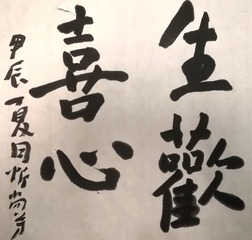 生歡
喜心
甲辰夏日忻尚芳